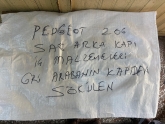 PEDGEOT 206
SAĞ ARKA KAPI
İÇ MALZEMELERİ
GRİ ARABANIN KAPIDAN
SÖKÜLEN